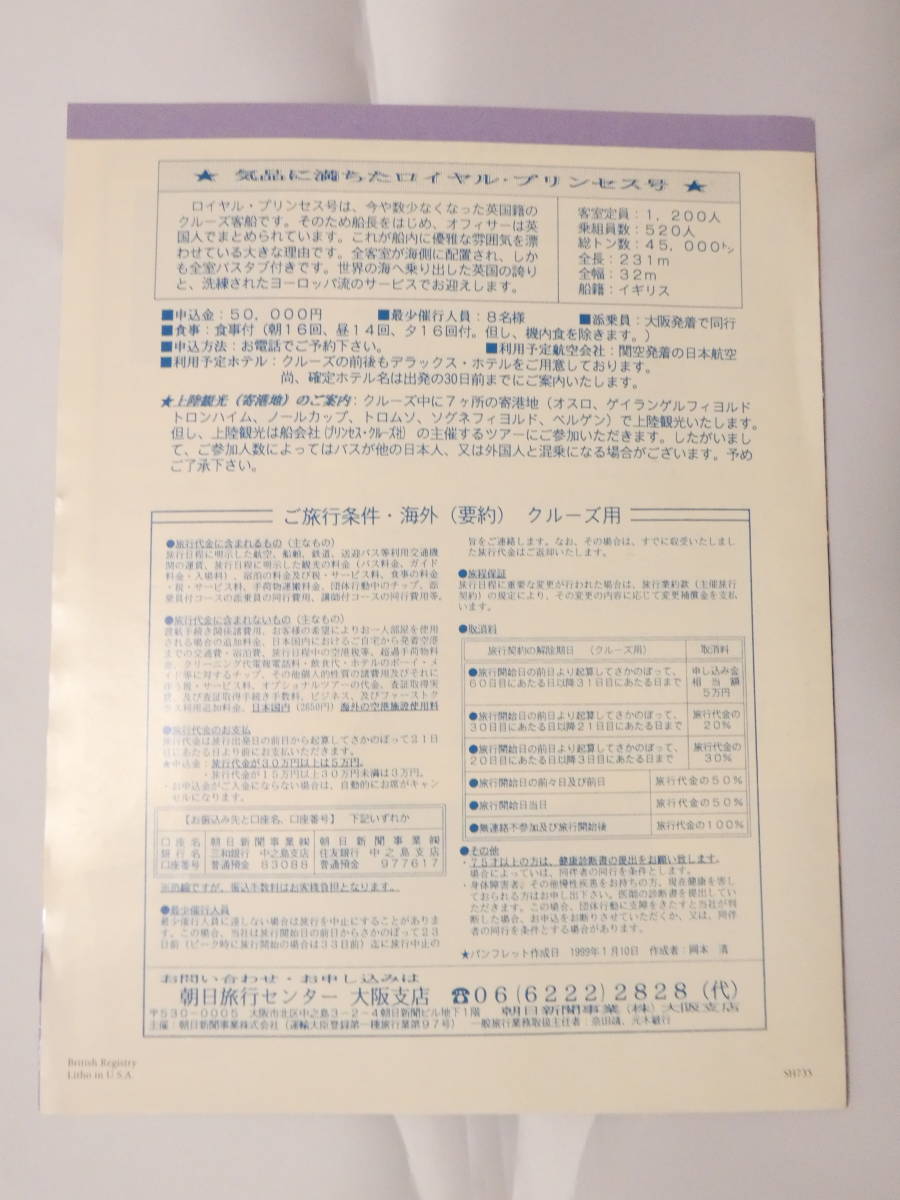 ★ 気品に満ちたロイヤル・プリンセス号 ★
ロイヤル・プリンセス号は、今や数少なくなった英国籍の
クルーズ客船です。そのため船長をはじめ、オフィサーは英
国人でまとめられています。これが船内に優雅な雰囲気を漂
わせている大きな理由です。全客室が海側に配置され、しか
も全室バスタブ付きです。世界の海へ乗り出した英国の誇り
と、洗練されたヨーロッパ流のサービスでお迎えします。
客室定員：1,200人
乗組員数：520人
総トン数：45,000トン
全長：231m
全幅：32m
船籍：イギリス
■申込金：50,000円 ■最少催行人員：8名様 ■添乗員：大阪発着で同行
■食事：食事付（朝16回、昼14回、夕16回付。但し、機内食を除きます。）
■申込方法：お電話でご予約下さい。 ■利用予定航空会社：関空発着の日本航空
■利用予定ホテル：クルーズの前後もデラックス・ホテルをご用意しております。
尚、確定ホテル名は出発の30日前までにご案内いたします。
★上陸観光（寄港地）のご案内：クルーズ中に7ヶ所の寄港地（オスロ、ゲイランゲルフィヨルド
トロンハイム、ノールカップ、トロムソ、ソグネフィヨルド、ベルゲン）で上陸観光いたします。
但し、上陸観光は船会社（プリンセス・クルーズ社）の主催するツアーにご参加いただきます。したがいまし
て、ご参加人数によってはバスが他の日本人、又は外国人と混乗になる場合がございます。予め
ご了承下さい。
ご旅行条件・海外（要約） クルーズ用
●旅行代金に含まれるもの（主なもの）
旅行日程に明示した航空、船舶、鉄道、送迎バス等利用交通機
関の運賃、旅行日程に明示した観光の料金（バス料金、ガイド
料金・入場料）、宿泊の料金及び税・サービス料、食事の料金
・税・サービス料、手荷物運搬料金、団体行動中のチップ、添
乗員付コースの添乗員の同行費用、講師付コースの同行費用等。
●旅行代金に含まれないもの（主なもの）
渡航手続き関係諸費用、お客様の希望によりお一人部屋を使用
される場合の追加料金、日本国内におけるご自宅から発着空港
までの交通費・宿泊費、旅行日程中の空港税等、超過手荷物料
金、クリーニング代電報電話料・飲食代・ホテルのボーイ・メ
イド等に対するチップ、その他個人的性質の諸費用及びそれに
伴う税・サービス料、オプショナルツアーの代金、査証取得実
費、及び査証取得手続き手数料、ビジネス、及びファーストク
ラス利用追加料金、日本国内（2650円）海外の空港施設使用料
●旅行代金のお支払
旅行代金は旅行出発日の前日から起算してさかのぼって21日
目にあたる日より前にお支払いただきます。
★申込金：旅行代金が30万円以上は5万円。
・旅行代金が15万円以上30万円未満は3万円。
・お申込金がご入金にならない場合は、自動的にお席がキャン
セルになります。
【お振込み先と口座名、口座番号】 下記いずれか
口座名 朝日新聞事業㈱ 朝日新聞事業㈱
銀行名 三和銀行 中之島支店 住友銀行 中之島支店
口座番号 普通預金 83088 普通預金 977617
※恐縮ですが、振込手数料はお客様負担となります。
●最少催行人員
最少催行人員に達しない場合は旅行を中止にすることがありま
す。この場合、当社は旅行開始日の前日からさかのぼって23
日前（ピーク時に旅行開始の場合は33日前）迄に旅行中止の
旨をご連絡します。なお、その場合は、すでに収受いたしまし
た旅行代金はご返却いたします。
●旅程保証
旅行日程に重要な変更が行われた場合は、旅行業約款（主催旅行
契約）の規定により、その変更の内容に応じて変更補償金を支払
います。
●取消料
旅行契約の解除期日 （クルーズ用） 取消料
●旅行開始日の前日より起算してさかのぼって、
60日目にあたる日以降31日目にあたる日まで 申し込み金相当額5万円
●旅行開始日の前日より起算してさかのぼって、
30日目にあたる日以降21日目にあたる日まで 旅行代金の20%
●旅行開始日の前日より起算してさかのぼって、
20日目にあたる日以降3日目にあたる日まで 旅行代金の30%
●旅行開始日の前々日及び前日 旅行代金の50%
●旅行開始日当日 旅行代金の50%
●無連絡不参加及び旅行開始後 旅行代金の100%
●その他
・75才以上の方は、健康診断書の提出をお願い致します。
場合によっては、同伴者の同行を条件とします。
・身体障害者、その他慢性疾患をお持ちの方、現在健康を害し
ておられる方はお申し出下さい。医師の診断書を提出してい
ただきます。この場合、団体行動に支障をきたすと当社が判
断した場合、お申込をお断りさせていただくか、又は、同伴
者の同行を条件とする場合があります。
★パンフレット作成日 1999年1月10日 作成者：岡本 清
お問い合わせ・お申し込みは
朝日旅行センター 大阪支店 ☎06(6222)2828（代）
〒530-0005 大阪市北区中之島3-2-4朝日新聞ビル地下1階 朝日新聞事業（株）大阪支店
主催：朝日新聞事業株式会社（運輸大臣登録第一種旅行業第97号） 一般旅行業務取扱主任者：
British Registry
Litho in U.S.A.
SH733